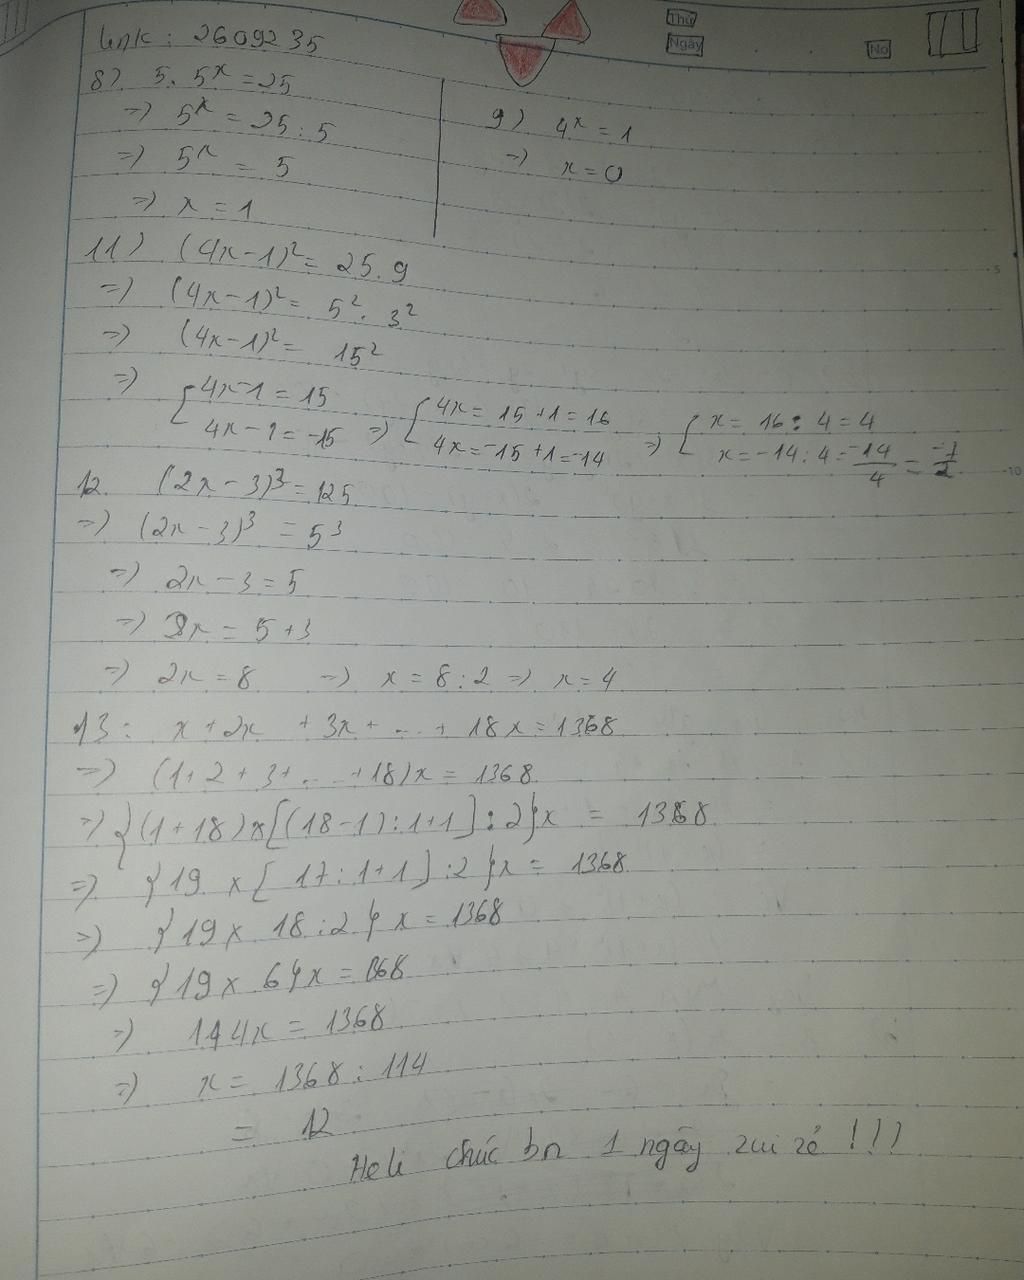 Thứ
Ngày
No
link : 2609235
8) 5. 5^x = 25
=) 5^x = 25 : 5
=) 5^x = 5
=) x = 1
9) 4^x = 1
=) x = 0
11) (4x-1)² = 25.9
=) (4x-1)² = 5². 3²
=) (4x-1)² = 15²
=) [ 4x-1 = 15 =) [ 4x = 15+1 = 16 =) [ x = 16 : 4 = 4
4x-1 = -15 4x = -15+1 = -14 x = -14 : 4 = -14/4 = -7/2
12. (2x-3)³ = 125
=) (2x-3)³ = 5³
=) 2x-3 = 5
=) 2x = 5+3
=) 2x = 8 =) x = 8 : 2 =) x = 4
13 : x + 2x + 3x + ... + 18x = 1368
=) (1+2+3+...+18)x = 1368
=) {(1+18) x [(18-1) : 1+1] : 2}x = 1368
=) {19 x [17 : 1+1] : 2}x = 1368
=) {19 x 18 : 2} x = 1368
=) {19 x 6}x = 1368
=) 114x = 1368
=) x = 1368 : 114
= 12
Heli chúc bn 1 ngày zui zẻ !!!
5
10